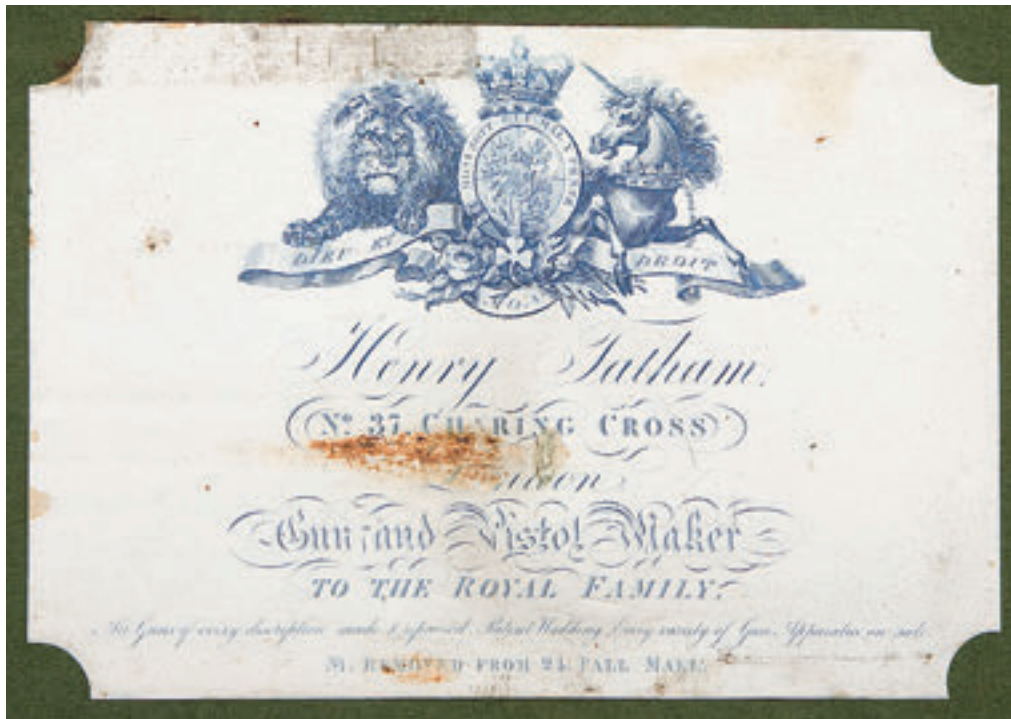 HONI SOIT QUI MAL Y PENSE
DIEU ET
DROIT
MON
Henry Tatham,
No. 37, CHARING CROSS
London
Gun and Pistol Maker
TO THE ROYAL FAMILY.
Air Guns of every description made & repaired. Patent Wadding & every variety of Gun Apparatus on sale.
REMOVED FROM 24 PALL MALL.